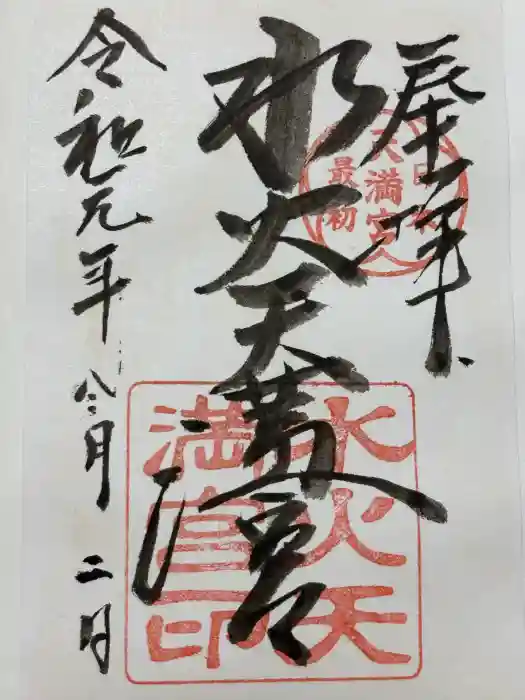 奉拝
水火天満宮
令和元年八月二日
日本
天満宮
最初
水火天
満宮印